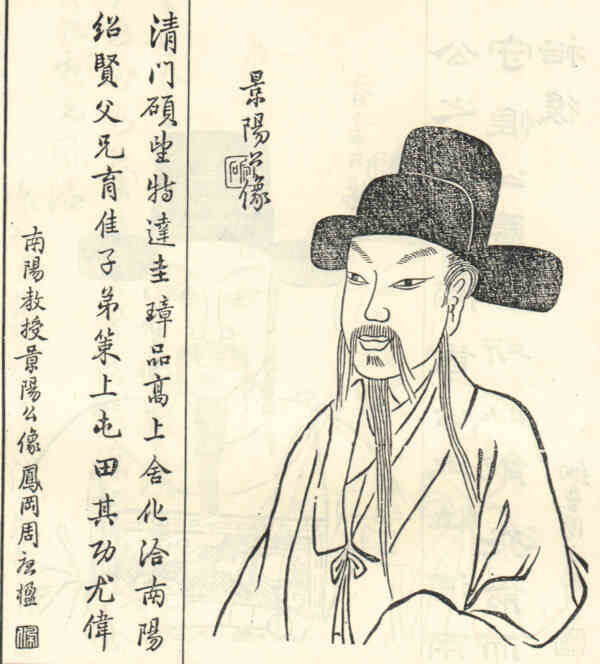 景陽公像
清门碩望特達圭璋品高上舍化洽南陽
紹賢父兄育佳子弟策上屯田其功尤偉
南陽教授景陽公像鳳岡周